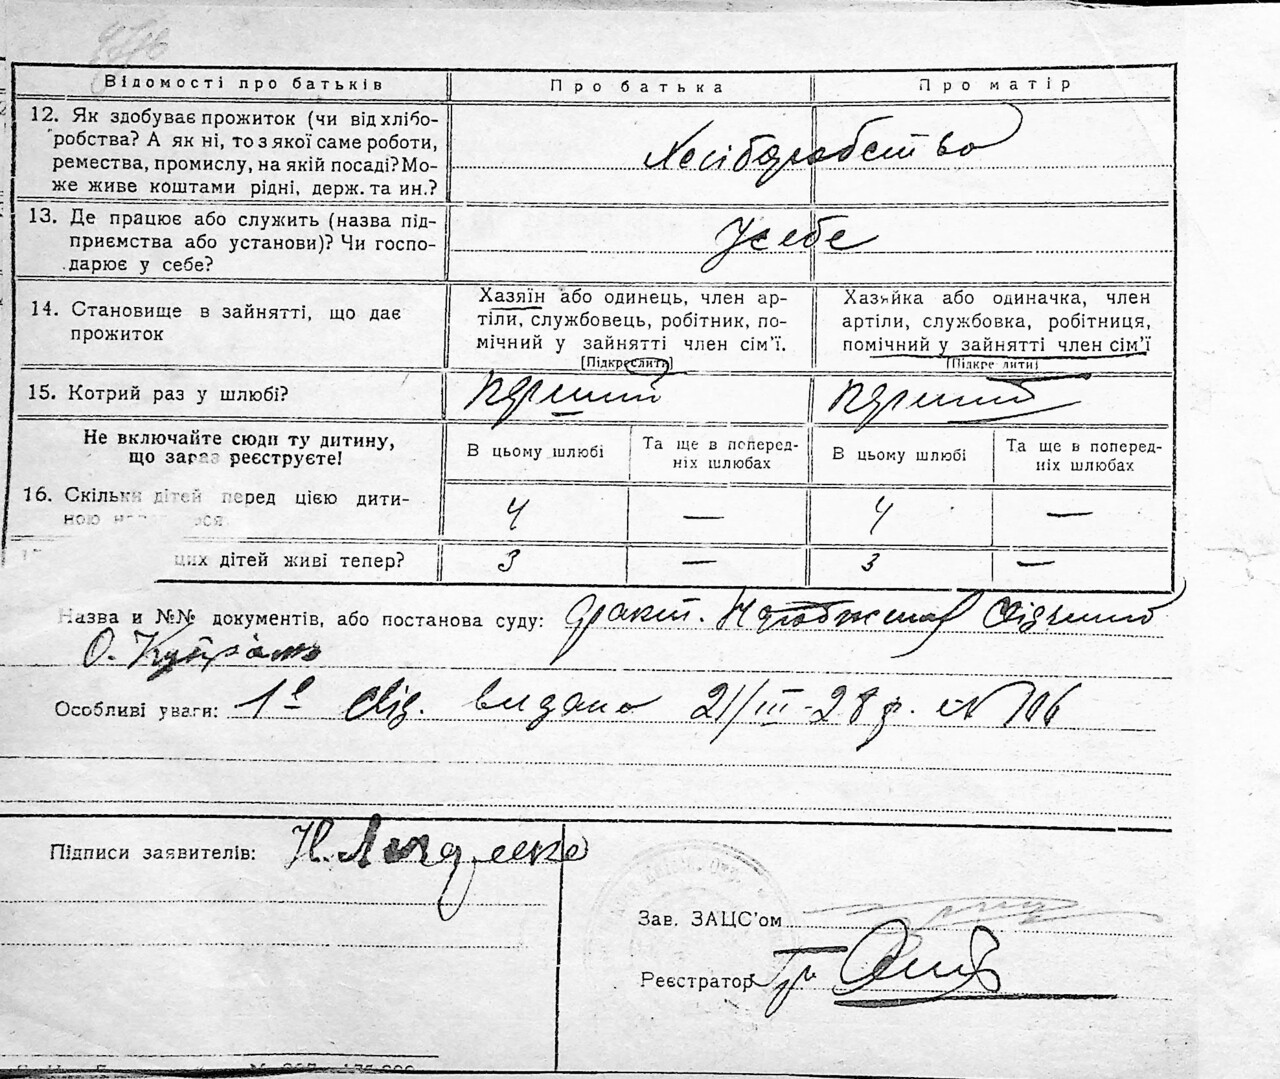 Відомості про батьків
Про батька
Про матір
12. Як здобуває прожиток (чи від хлібо-
робства? А як ні, то з якої саме роботи,
ремества, промислу, на якій посаді? Мо-
же живе коштами рідні, держ. та ин.?
Хліборобство
13. Де працює або служить (назва під-
приємства або установи)? Чи госпо-
дарює у себе?
У себе
14. Становище в зайнятті, що дає
прожиток
Хазяїн або одинець, член ар-
тіли, службовець, робітник, по-
мічний у зайнятті член сім'ї.
[Підкреслити]
Хазяйка або одиначка, член
артіли, службовка, робітниця,
помічний у зайнятті член сім'ї
[Підкре лити]
15. Котрий раз у шлюбі?
перший
перший
Не включайте сюди ту дитину,
що зараз реєструєте!
В цьому шлюбі
Та ще в поперед-
ніх шлюбах
В цьому шлюбі
Та ще в поперед-
ніх шлюбах
16. Скільки дітей перед цією дити-
ною
4
—
4
—
цих дітей живі тепер?
3
—
3
—
Назва и №№ документів, або постанова суду:
О.
Особливі уваги: 1е свід. видано 21/III-28 р. № 106
Підписи заявителів: Н.
Зав. ЗАЦС'ом
Реєстратор